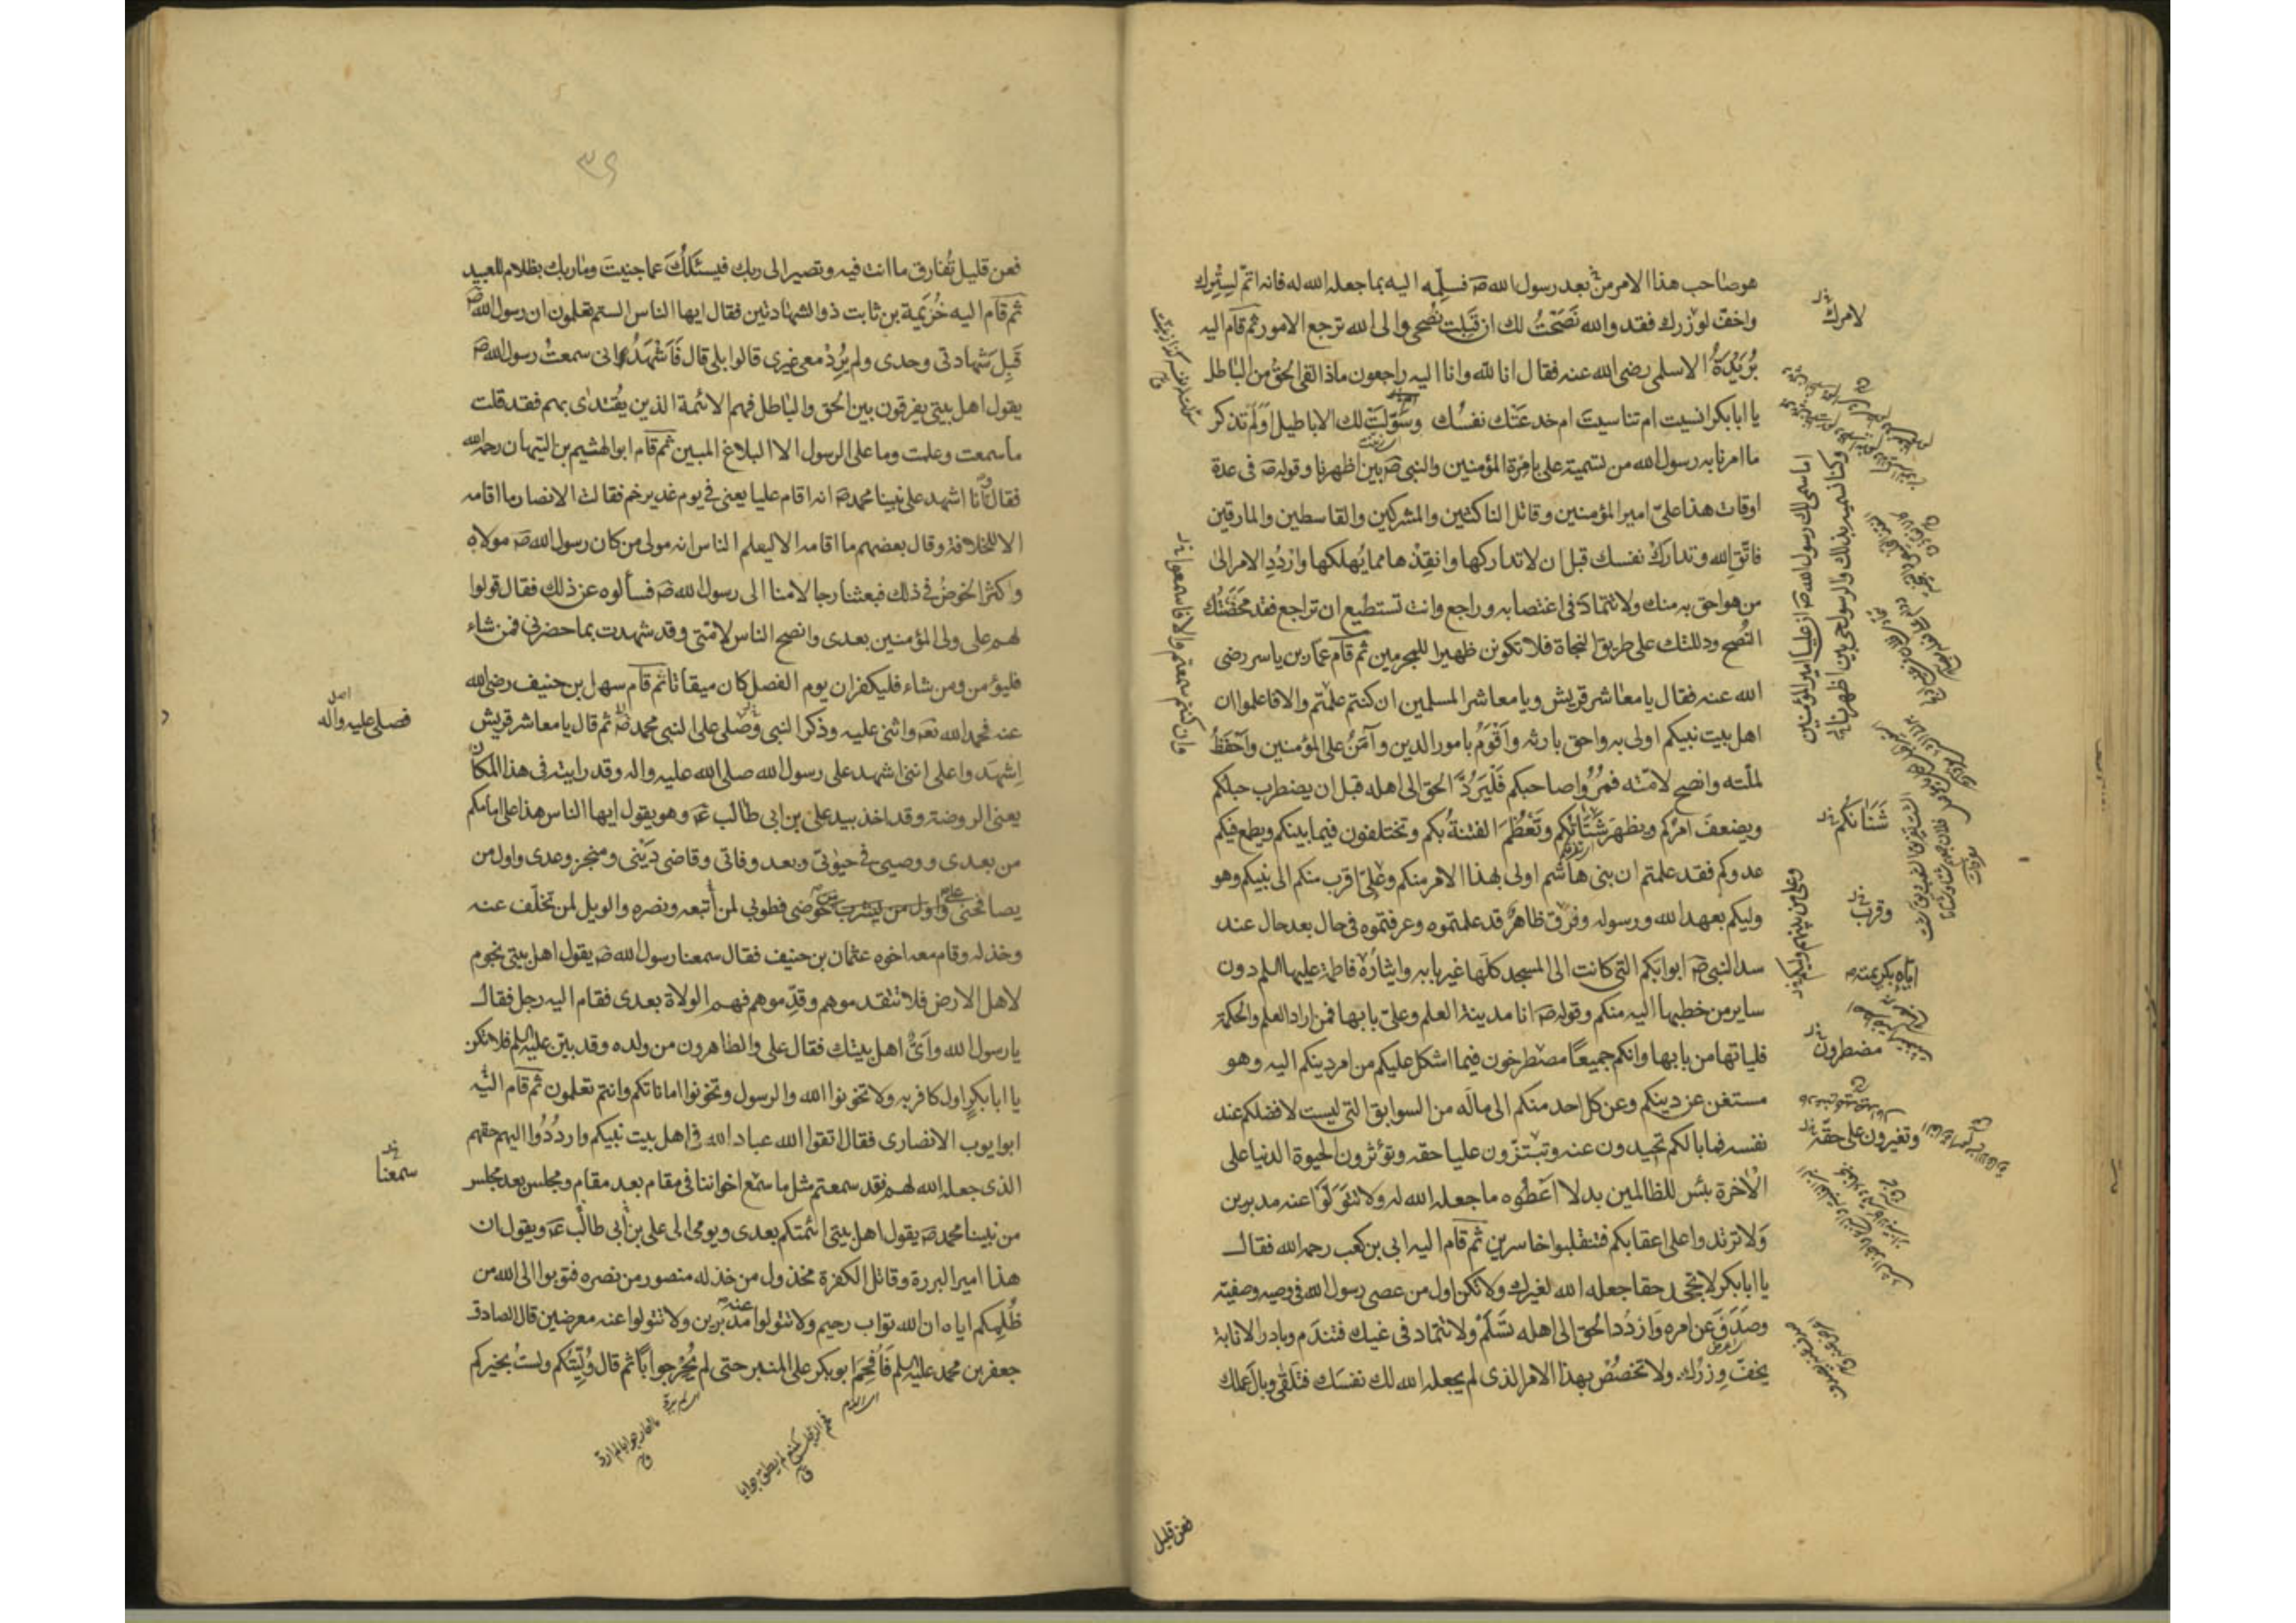 هو صاحب هذا الامر من بعد رسول الله صه فسلّمه اليه بما جعله الله له فانه اتمّ لسترك
واخفّ لوزرك فقد والله نَصَحْتُ لك ان قَبِلت نُصحى والى الله ترجع الامور ثم قام اليه
بُرَيْدَةُ الاسلمى رضى الله عنه فقال انا لله وانا اليه راجعون ماذا لقى الحقُ من الباطل
يا ابابكر انسيت ام تناسيتَ ام خدعَتْك نفسُك وسَوّلَتْ لك الاباطيل اَوَلَم تذكر
ما امرنا به رسول الله من تسمية على بامرة المؤمنين والنبى صه بين اظهرنا وقوله صه فى عدة
اوقات هذا علىّ امير المؤمنين وقاتل الناكثين والمشركين والقاسطين والمارقين
فاتّقِ الله وتدارَكْ نفسك قبل ان لا تدارَكها وانقِذْها مما يُهلكها وارْدُدِ الامر الىٰ
من هو احق به منك ولا تتمادَ فى اغتصابه وراجع وانت تستطيع ان تراجع فقد محَضْتُك
النُصح ودللتك على طريق النجاة فلا تكونن ظهيرا للمجرمين ثم قام عمّار بن ياسر رضى
الله عنه فقال يا معاشر قريش ويا معاشر المسلمين ان كنتم علمتم والا فاعلموا ان
اهل بيت نبيكم اولى به واحق بارثه واَقْوَمُ بامور الدين وآمَنُ على المؤمنين واَحْفَظُ
لملّته وانصح لامّته فمُرُوا صاحبكم فَلْيَرُدَّ الحق الى اهله قبل ان يضطرب حبلكم
ويضعفَ امرُكم ويظهرَ شَتَاتُكم وتَعْظُمَ الفتنةُ بكم وتختلفون فيما بينكم ويطمع فيكم
عدوكم فقد علمتم ان بنى هاشم اولى بهذا الامر منكم وعَلىّ اقرب منكم الى نبيكم وهو
وليكم بعهد الله ورسوله وفرق ظاهر قد علمتموه وعرفتموه فى حال بعد حال عند
سد النبى صه ابوابكم التى كانت الى المسجد كلّها غير بابه وايثارُهُ فاطمة عليها السلم دون
ساير من خطبها اليه منكم وقوله صه انا مدينة العلم وعلىّ بابها فمن اراد العلم والحكمة
فلياتها من بابها وانكم جميعًا مصطرخون فيما اشكل عليكم من امر دينكم اليه وهو
مستغن عن دينكم وعن كل احد منكم الى ماله من السوابق التى ليست لافضلكم عند
نفسه فما بالكم تحيدون عنه وتبتزّون عليا حقه وتؤثرون الحيوة الدنيا على
الاخرة بئس للظالمين بدلا اَعْطُوه ما جعله الله له ولا تتَوَلّوا عنه مدبرين
وَلا ترتدوا على اعقابكم فتنقلبوا خاسرين ثم قام اليه ابى بن كعب رحمه الله فقال
يا ابابكر لا تجحد حقا جعله الله لغيرك ولا تكن اول من عصى رسول الله فى وصيه وصفيّه
وصَدَفَ عن امره وَارْدُد الحق الى اهله تَسْلَمْ ولا تتماد فى غيك فتندَم وبادر الانابة
يخفّ وِزْرُك ولا تخصُصْ بهذا الامر الذى لم يجعله الله لك نفسَك فتلقٰى وبالَ عملك
لامرك
اما سمى لك رسول الله صه ان عليا امير المؤمنين
وكنا نسميه بذلك والرسول حى بين اظهرنا
شَنَآنكُم
وقرب
وعلى من بينهم وليكم
اياه بكريمته
مضطرون
وتغيرون على حقه
وان كنتم سمعتم والا فاسمعوا
فعن قليل
٣٤
فعن قليل تُفارق ما انت فيه وتصير الى ربك فيسئَلُكَ عما جنيتَ وما ربك بظلام للعبيد
ثم قام اليه خُزَيمة بن ثابت ذوالشهادتين فقال ايها الناس الستم تعلمون ان رسول الله صه
قَبِلَ شهادتى وحدى ولم يُرِدْ معى غيرى قالوا بلى قال فَاَشْهَدُ انى سمعتُ رسول الله صه
يقول اهل بيتى يفرقون بين الحق والباطل فهم الائمة الذين يُقتدٰى بهم فقد قلت
ما سمعت وعلمت وما على الرسول الا البلاغ المبين ثم قام ابو الهيثم بن التيهان رحمه الله
فقال وانا اشهد على نبينا محمد صه انه اقام عليا يعنى فى يوم غدير خم فقالت الانصار ما اقامه
الا للخلافة وقال بعضهم ما اقامه الا ليعلم الناس انه مولى من كان رسول الله صه مولاه
واكثرَ الخوضُ فى ذلك فبعثنا رجالا منا الى رسول الله صه فسألوه عن ذلك فقال قولوا
لهم على ولى المؤمنين بعدى وانصح الناس لامّتى وقد شهدت بما حضرنى فمن شاء
فليؤمن ومن شاء فليكفر ان يوم الفصل كان ميقاتا ثم قام سهل بن حنيف رضى الله
عنه فحمد الله تعه واثنى عليه وذكر النبى وصلى على النبى محمد صه ثم قال يا معاشر قريش
اِشهَدوا على اننى اشهد على رسول الله صلى الله عليه واله وقد رايته فى هذا المكان
يعنى الروضة وقد اخذ بيد على بن ابى طالب عه وهو يقول ايها الناس هذا على امامكم
من بعدى ووصيى فى حيوتى وبعد وفاتى وقاضى دَيْنى ومنجز وعدى واول من
يصافحنى على حوضى فطوبى لمن اتبعه ونصره والويل لمن تخلّف عنه
وخذله وقام معه اخوه عثمان بن حنيف فقال سمعنا رسول الله صه يقول اهل بيتى نجوم
لاهل الارض فلا تتقدموهم وقدّموهم فهم الولاة بعدى فقام اليه رجل فقال
يا رسول الله واَىُّ اهل بيتك فقال على والطاهرون من ولده وقد بيّن عليه السلم فلا تكن
يا ابا بكر اول كافر به ولا تخونوا الله والرسول وتخونوا اماناتكم وانتم تعلمون ثم قام اليه
ابو ايوب الانصارى فقال اتقوا الله عباد الله فى اهل بيت نبيكم واردُدُوا اليهم حقهم
الذى جعله الله لهم فقد سمعتم مثل ما سمع اخواننا فى مقام بعد مقام ومجلس بعد مجلس
من نبينا محمد صه يقول اهل بيتى ائمتكم بعدى ويومى الى على بن ابى طالب عه ويقول ان
هذا امير البررة وقاتل الكفرة مخذول من خذله منصور من نصره فتوبوا الى الله من
ظُلمِكم اياه ان الله تواب رحيم ولا تتولوا عنه مدبرين ولا تتولوا عنه معرضين قال الصادق
جعفر بن محمد عليه السلم فَاُفحِمَ ابو بكر على المنبر حتى لم يُحِرْ جوابًا ثم قال وُلّيتُكم ولستُ بخيركم
اصل
فصلى عليه واله
سمعنا